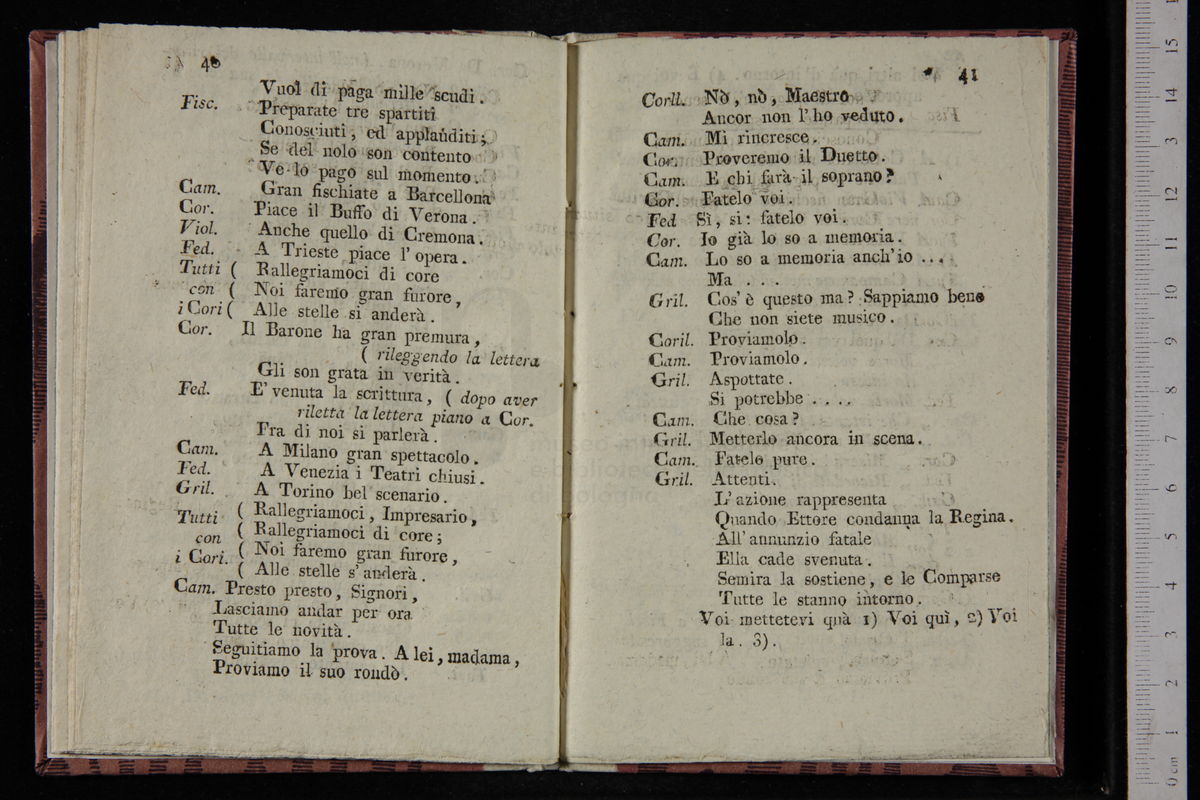 40
Vuol di paga mille scudi.
Fisc. Preparate tre spartiti
Conosciuti, ed applauditi;
Se del nolo son contento
Ve lo pago sul momento.
Cam. Gran fischiate a Barcellona
Cor. Piace il Buffo di Verona.
Viol. Anche quello di Cremona.
Fed. A Trieste piace l'opera.
Tutti ( Rallegriamoci di core
con ( Noi faremo gran furore,
i Cori ( Alle stelle si anderà.
Cor. Il Barone ha gran premura,
( rileggendo la lettera
Gli son grata in verità.
Fed. E' venuta la scrittura, ( dopo aver
riletta la lettera piano a Cor.
Fra di noi si parlerà.
Cam. A Milano gran spettacolo.
Fed. A Venezia i Teatri chiusi.
Gril. A Torino bel scenario.
Tutti ( Rallegriamoci, Impresario,
con ( Rallegriamoci di core;
i Cori. ( Noi faremo gran furore,
( Alle stelle s'anderà.
Cam. Presto presto, Signori,
Lasciamo andar per ora
Tutte le novità.
Seguitiamo la prova. A lei, madama,
Proviamo il suo rondò.
41
Corll. Nò, nò, Maestro
Ancor non l'ho veduto.
Cam. Mi rincresce.
Cor. Proveremo il Duetto.
Cam. E chi farà il soprano?
Cor. Fatelo voi.
Fed Sì, si: fatelo voi.
Cor. Io già lo so a memoria.
Cam. Lo so a memoria anch'io ...
Ma . . .
Gril. Cos'è questo ma? Sappiamo bene
Che non siete musico.
Coril. Proviamolo.
Cam. Proviamolo.
Gril. Aspottate.
Si potrebbe . . . .
Cam. Che cosa?
Gril. Metterlo ancora in scena.
Cam. Fatelo pure.
Gril. Attenti.
L'azione rappresenta
Quando Ettore condanna la Regina.
All'annunzio fatale
Ella cade svenuta.
Semira la sostiene, e le Comparse
Tutte le stanno intorno.
Voi mettetevi quà 1) Voi quì, 2) Voi
la. 3).